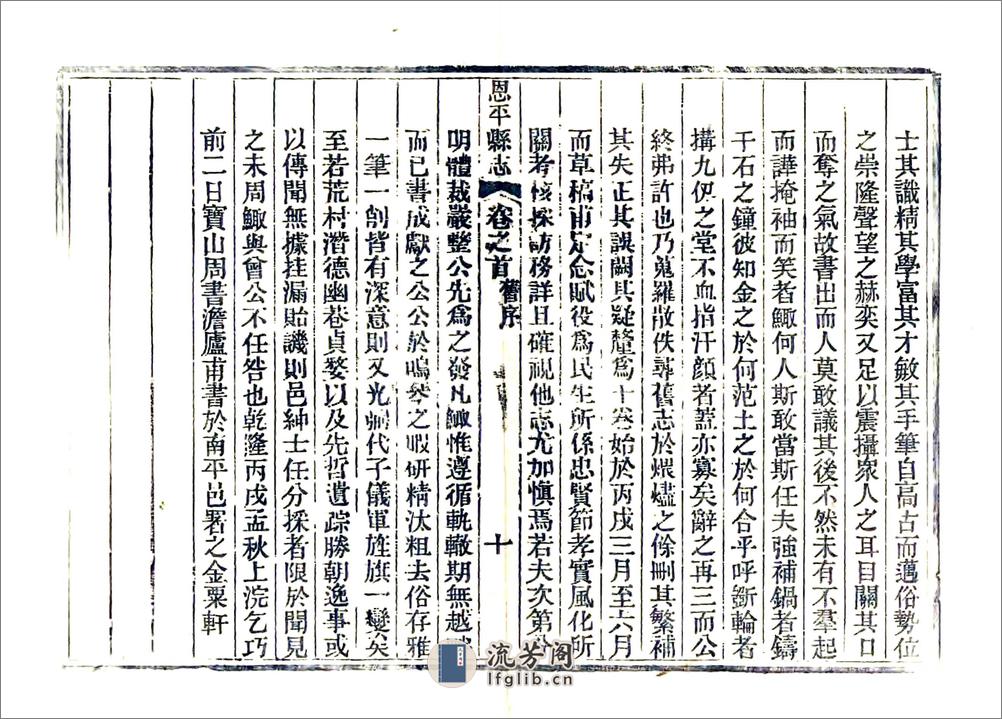 士其識精其學富其才敏其手筆自高古而邁俗勢位
之崇隆聲望之赫奕又足以震攝衆人之耳目關其口
而奪之氣故書出而人莫敢議其後不然未有不羣起
而譁掩袖而笑者鯫何人斯敢當斯任夫強補鍋者鑄
千石之鐘彼知金之於何范土之於何合乎呼斵輪者
搆九仞之堂不血指汗顔者蓋亦寡矣辭之再三而公
終弗許也乃蒐羅散佚尋舊志於煨燼之餘刪其繁補
其失正其誤闕其疑釐為十卷始於丙戌三月至六月
而草稿甫定念賦役為民生所係忠賢節孝實風化所
關考核採訪務詳且確視他志尤加慎焉若夫次第分
恩平縣志 卷之首 舊序 十
明體裁嚴整公先為之發凡鯫惟遵循軌轍期無越
而已書成獻之公公於鳴琴之暇研精汰粗去俗存雅
一筆一削皆有深意則又光弼代子儀軍旌旗一變矣
至若荒村潛德幽巷貞嫠以及先哲遺踪勝朝逸事或
以傳聞無據挂漏貽譏則邑紳士任分採者限於聞見
之未周鯫與會公不任咎也乾隆丙戌孟秋上浣乞巧
前二日寶山周書澹廬甫書於南平邑署之金粟軒
流芳阁
lfglib.cn